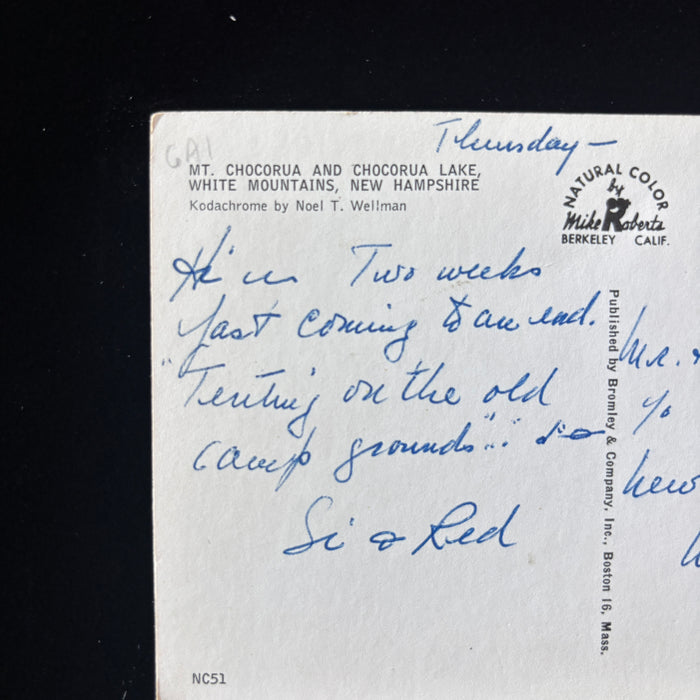 6A1
Thursday —
MT. CHOCORUA AND CHOCORUA LAKE,
WHITE MOUNTAINS, NEW HAMPSHIRE
Kodachrome by Noel T. Wellman
NATURAL COLOR
by
Mike Roberts
BERKELEY CALIF.
Two weeks
fast coming to an end.
"Tenting on the old
camp grounds"
Si & Red
Published by Bromley & Company, Inc., Boston 16, Mass.
Mr.
%
New
NC51